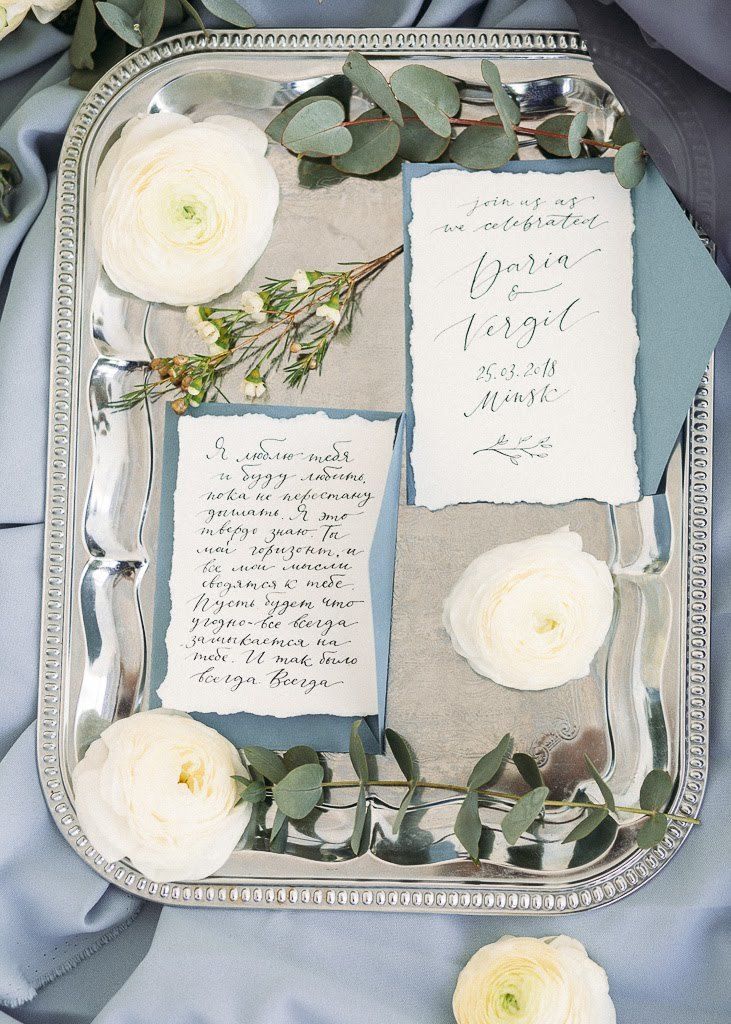 join us as
we celebrated
Daria
&
Vergil
25.03.2018
Minsk
Я люблю тебя
и буду любить,
пока не перестану
дышать. Я это
твердо знаю. Ты
мой горизонт, и
все мои мысли
сводятся к тебе.
Пусть будет что
угодно-все всегда
замыкается на
тебе. И так было
всегда. Всегда